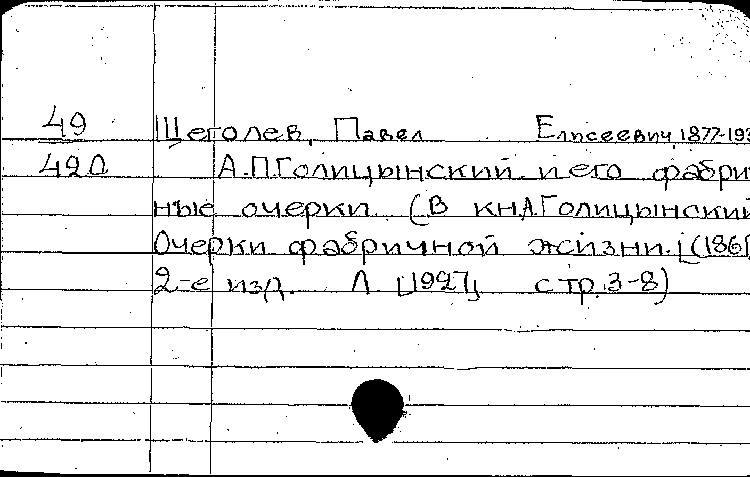 49 Щеголев, Павел Елисеевич, 1877-193
420 А.П.Голицынский и его фабри
ные очерки. (В кн.А.Голицынский
Очерки фабричной жизни. [(1861
2-е изд. Л. [1927] стр.3-8)